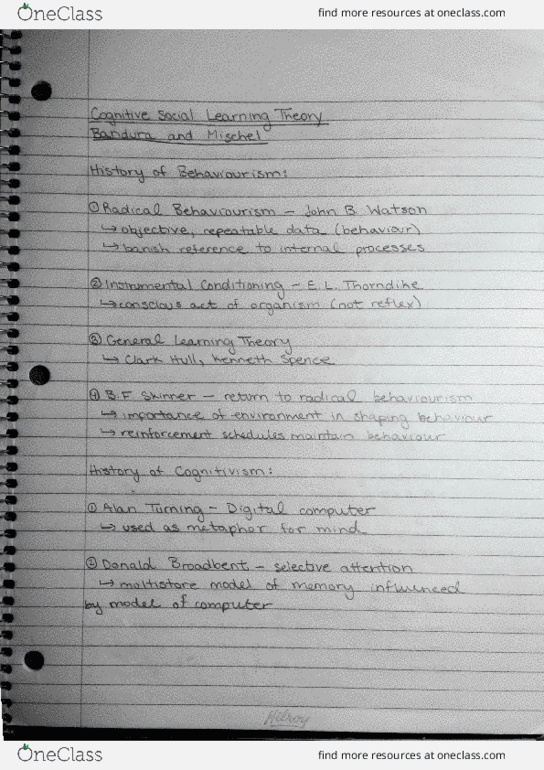 OneClass find more resources at oneclass.com
Cognitive Social Learning Theory
Bandura and Mischel
History of Behaviourism:
① Radical Behaviourism - John B. Watson
↳ objective, repeatable data (behaviour)
↳ banish reference to internal processes
② Instrumental Conditioning - E.L. Thorndike
↳ conscious act of organism (not reflex)
③ General Learning Theory
↳ Clark Hull, Kenneth Spence
④ B.F Skinner - return to radical behaviourism
↳ importance of environment in shaping behaviour
↳ reinforcement schedules maintain behaviour
History of Cognitivism:
① Alan Turning - Digital computer
↳ used as metaphor for mind
② Donald Broadbent - selective attention
↳ multistore model of memory influenced
by model of computer
Hilroy
OneClass find more resources at oneclass.com